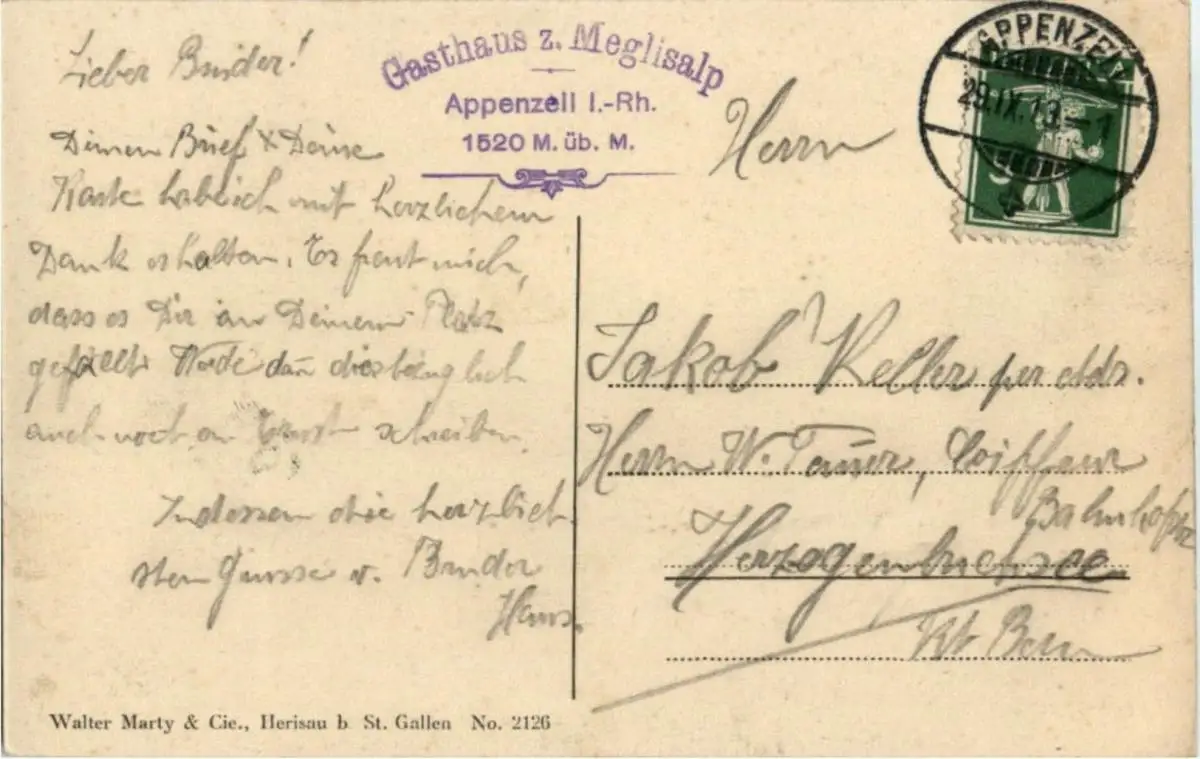 Lieber Bruder!
Deinen Brief & Deine
Karte hab ich mit herzlichem
Dank erhalten. Es freut mich,
dass es Dir an Deinem Platz
gefällt. Werde dan diesbezüglich
auch noch an Ernst schreiben.
Indessen die herzlich
sten Grüsse v. Bruder
Hans.
Gasthaus z. Meglisalp
Appenzell I.-Rh.
1520 M. üb. M.
APPENZELL
29.IX.13.–1
Herrn
Jakob Keller per Adr.
Herrn W. Tanner, Coiffeur
Bahnhofstr
Herzogenbuchsee
Kt. Bern
Walter Marty & Cie., Herisau b St. Gallen No. 2126